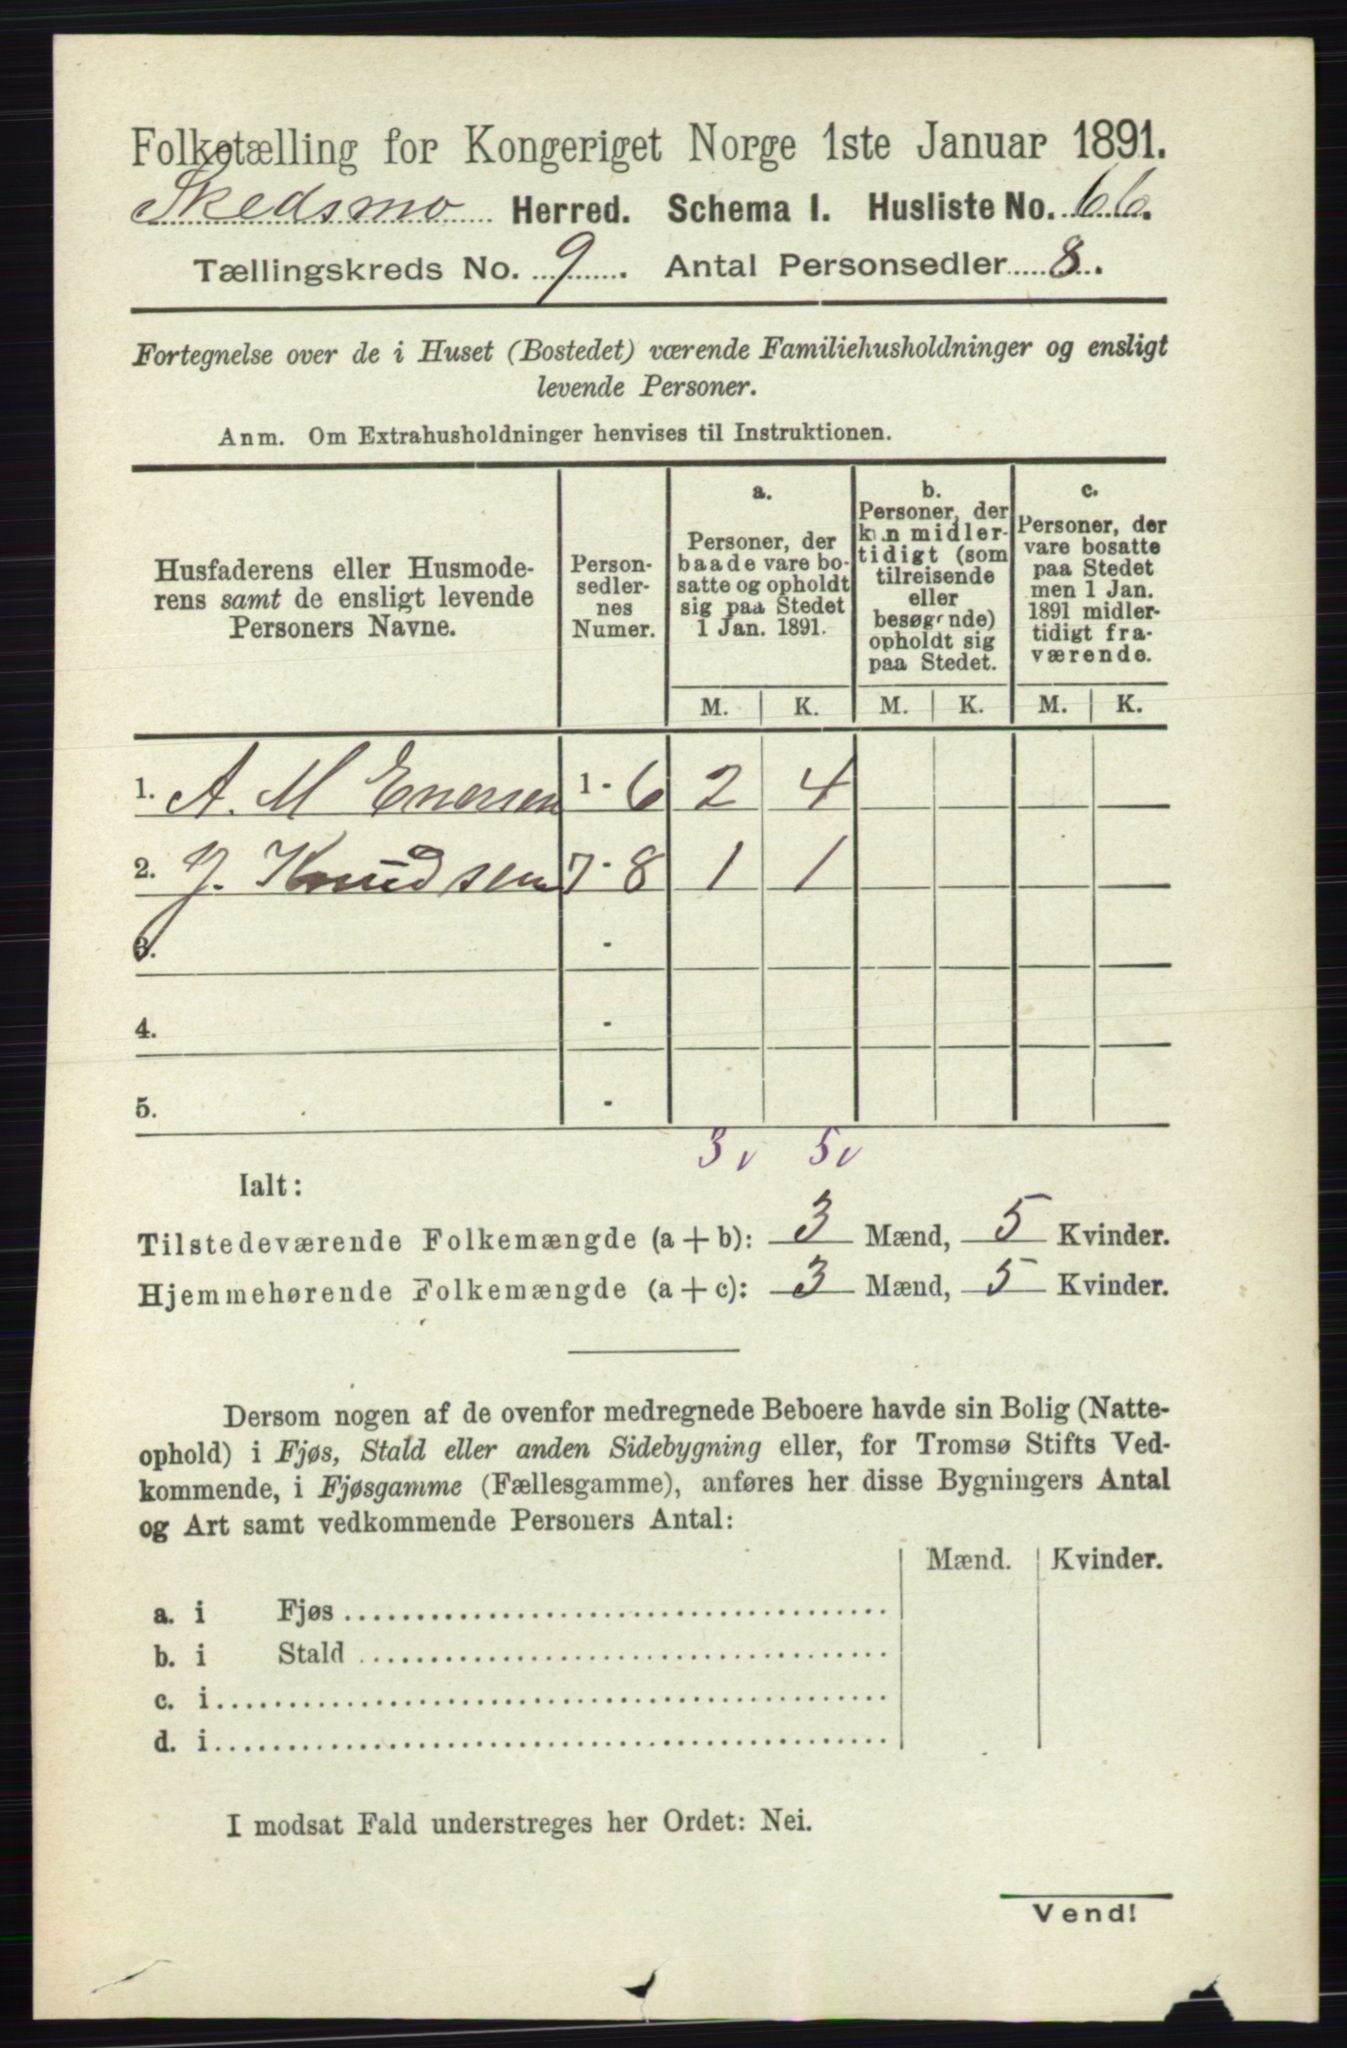 Folketælling for Kongeriget Norge 1ste Januar 1891.
Skedsmo Herred. Schema I. Husliste No. 66.
Tællingskreds No. 9. Antal Personsedler 8.
Fortegnelse over de i Huset (Bostedet) værende Familiehusholdninger og ensligt
levende Personer.
Anm. Om Extrahusholdninger henvises til Instruktionen.
Husfaderens eller Husmode-
rens samt de ensligt levende
Personers Navne.
Person-
sedler-
nes
Numer.
a.
Personer, der
baade vare bo-
satte og opholdt
sig paa Stedet
1 Jan. 1891.
b.
Personer, der
kun midler-
tidigt (som
tilreisende
eller
besøgende)
opholdt sig
paa Stedet.
c.
Personer, der
vare bosatte
paa Stedet
men 1 Jan.
1891 midler-
tidigt fra-
værende.
M. K. M. K. M. K.
1. A. M Enersen 1 - 6 2 4
2. J. Knudsen 7 - 8 1 1
3. -
4. -
5. -
3 v 5 v
Ialt:
Tilstedeværende Folkemængde (a + b): 3 Mænd, 5 Kvinder.
Hjemmehørende Folkemængde (a + c): 3 Mænd, 5 Kvinder.
Dersom nogen af de ovenfor medregnede Beboere havde sin Bolig (Natte-
ophold) i Fjøs, Stald eller anden Sidebygning eller, for Tromsø Stifts Ved-
kommende, i Fjøsgamme (Fællesgamme), anføres her disse Bygningers Antal
og Art samt vedkommende Personers Antal:
Mænd. Kvinder.
a. i Fjøs
b. i Stald
c. i
d. i
I modsat Fald understreges her Ordet: Nei.
Vend!